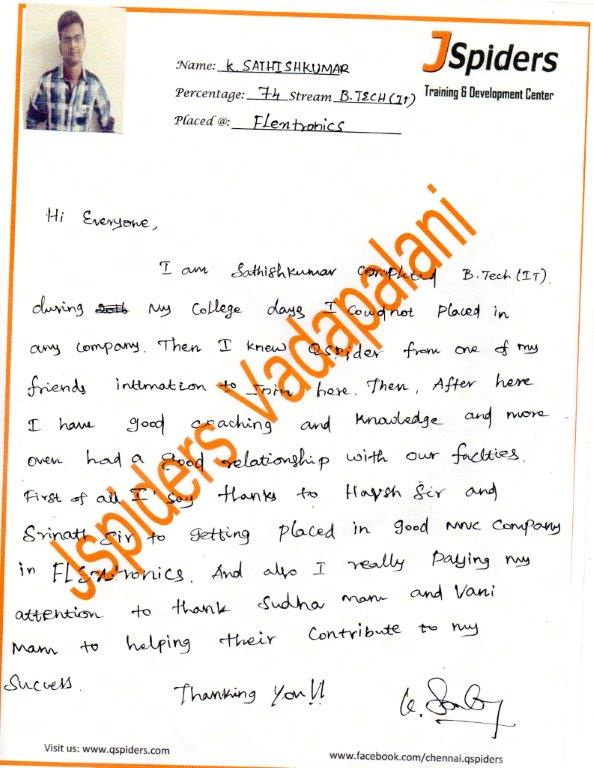 JSpiders
Training & Development Center
Name: K. SATHISHKUMAR
Percentage: 74 Stream B.TECH (IT)
Placed @: FLentronics
Hi Everyone,
I am Sathishkumar completed B.Tech (IT).
during my college days I could not placed in
any company. Then I knew QSpider from one of my
friends intimation to Join here. Then, After here
I have good coaching and knowledge and more
over had a good relationship with our faclties.
First of all I' say thanks to Harsh Sir and
Srinath Sir to getting placed in good MNC Company
in FLentronics. And also I really paying my
attention to thank Sudha mam and Vani
Mam to helping their contribute to my
Success.
Thanking You!!
Jspiders Vadapalani
Visit us: www.qspiders.com
www.facebook.com/chennai.qspiders